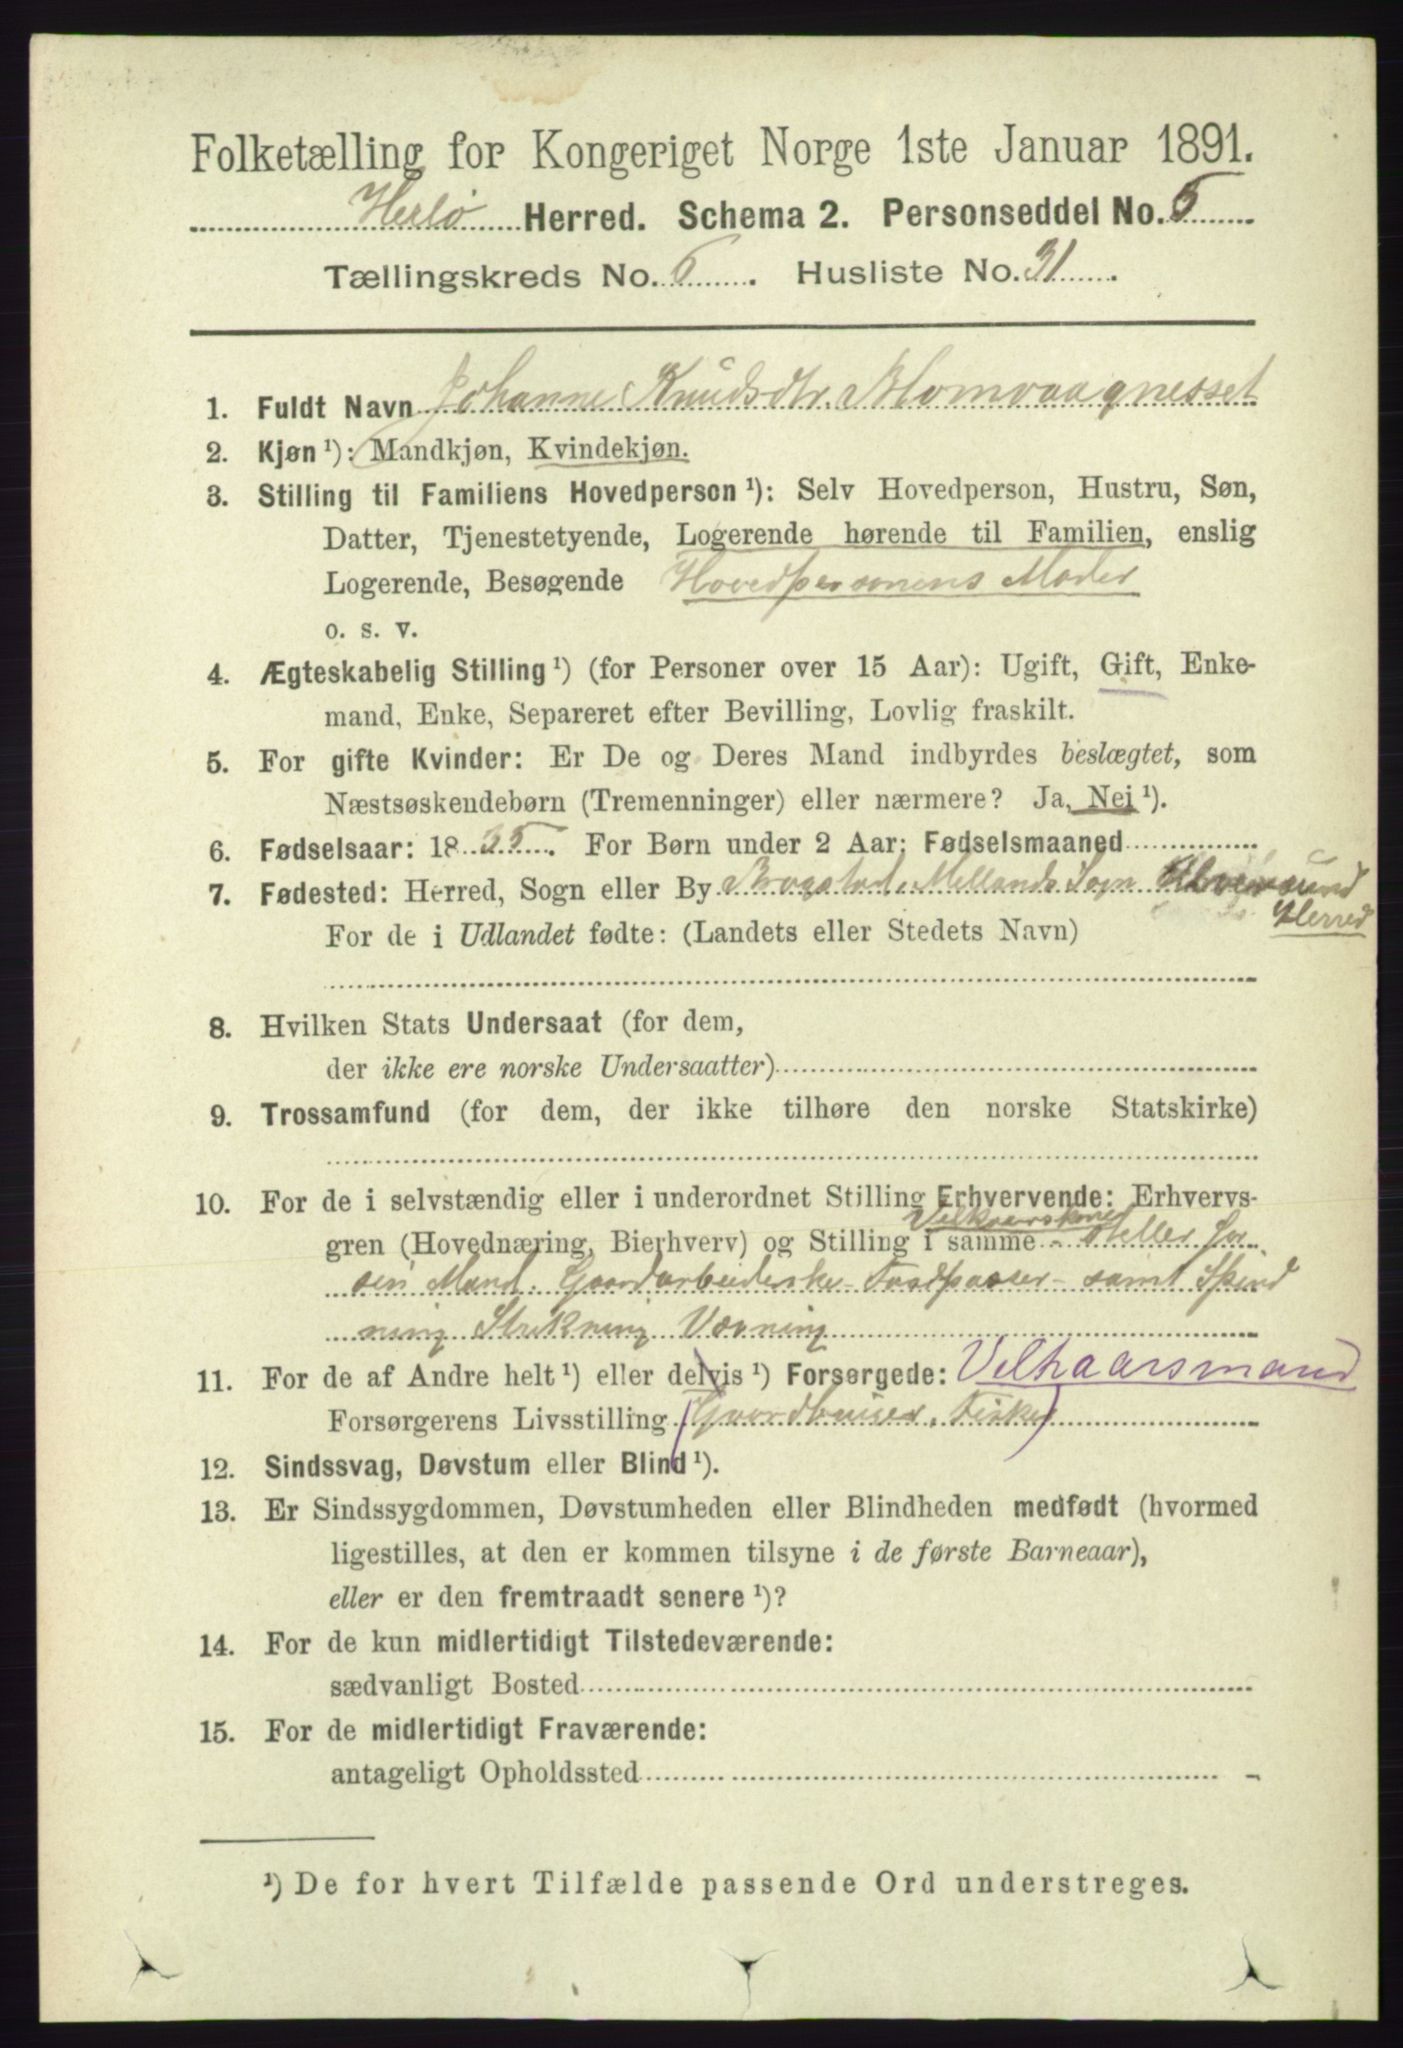 Folketælling for Kongeriget Norge 1ste Januar 1891.
Herlø Herred. Schema 2. Personseddel No. 5
Tællingskreds No. 6. Husliste No. 31.
1. Fuldt Navn Johanne Knudsdtr. Blomvaagnesset
2. Kjøn ¹): Mandkjøn, Kvindekjøn.
3. Stilling til Familiens Hovedperson ¹): Selv Hovedperson, Hustru, Søn,
Datter, Tjenestetyende, Logerende hørende til Familien, enslig
Logerende, Besøgende Hovedpersonens Moder
o. s. v.
4. Ægteskabelig Stilling ¹) (for Personer over 15 Aar): Ugift, Gift, Enke-
mand, Enke, Separeret efter Bevilling, Lovlig fraskilt.
5. For gifte Kvinder: Er De og Deres Mand indbyrdes beslægtet, som
Næstsøskendebørn (Tremenninger) eller nærmere? Ja, Nei ¹).
6. Fødselsaar: 1835. For Børn under 2 Aar: Fødselsmaaned
7. Fødested: Herred, Sogn eller By Sogn
Herred
For de i Udlandet fødte: (Landets eller Stedets Navn)
8. Hvilken Stats Undersaat (for dem,
der ikke ere norske Undersaatter)
9. Trossamfund (for dem, der ikke tilhøre den norske Statskirke)
10. For de i selvstændig eller i underordnet Stilling Erhvervende: Erhvervs-
gren (Hovednæring, Bierhverv) og Stilling i samme - steller for
sin Mand. Gaardarbeiderske - - samt Spind
ning Strikning Vævning
11. For de af Andre helt ¹) eller delvis ¹) Forsørgede: Velkaarsmand
Forsørgerens Livsstilling (Gaardbruger. Fisker)
12. Sindssvag, Døvstum eller Blind ¹).
13. Er Sindssygdommen, Døvstumheden eller Blindheden medfødt (hvormed
ligestilles, at den er kommen tilsyne i de første Barneaar),
eller er den fremtraadt senere ¹)?
14. For de kun midlertidigt Tilstedeværende:
sædvanligt Bosted
15. For de midlertidigt Fraværende:
antageligt Opholdssted
¹) De for hvert Tilfælde passende Ord understreges.